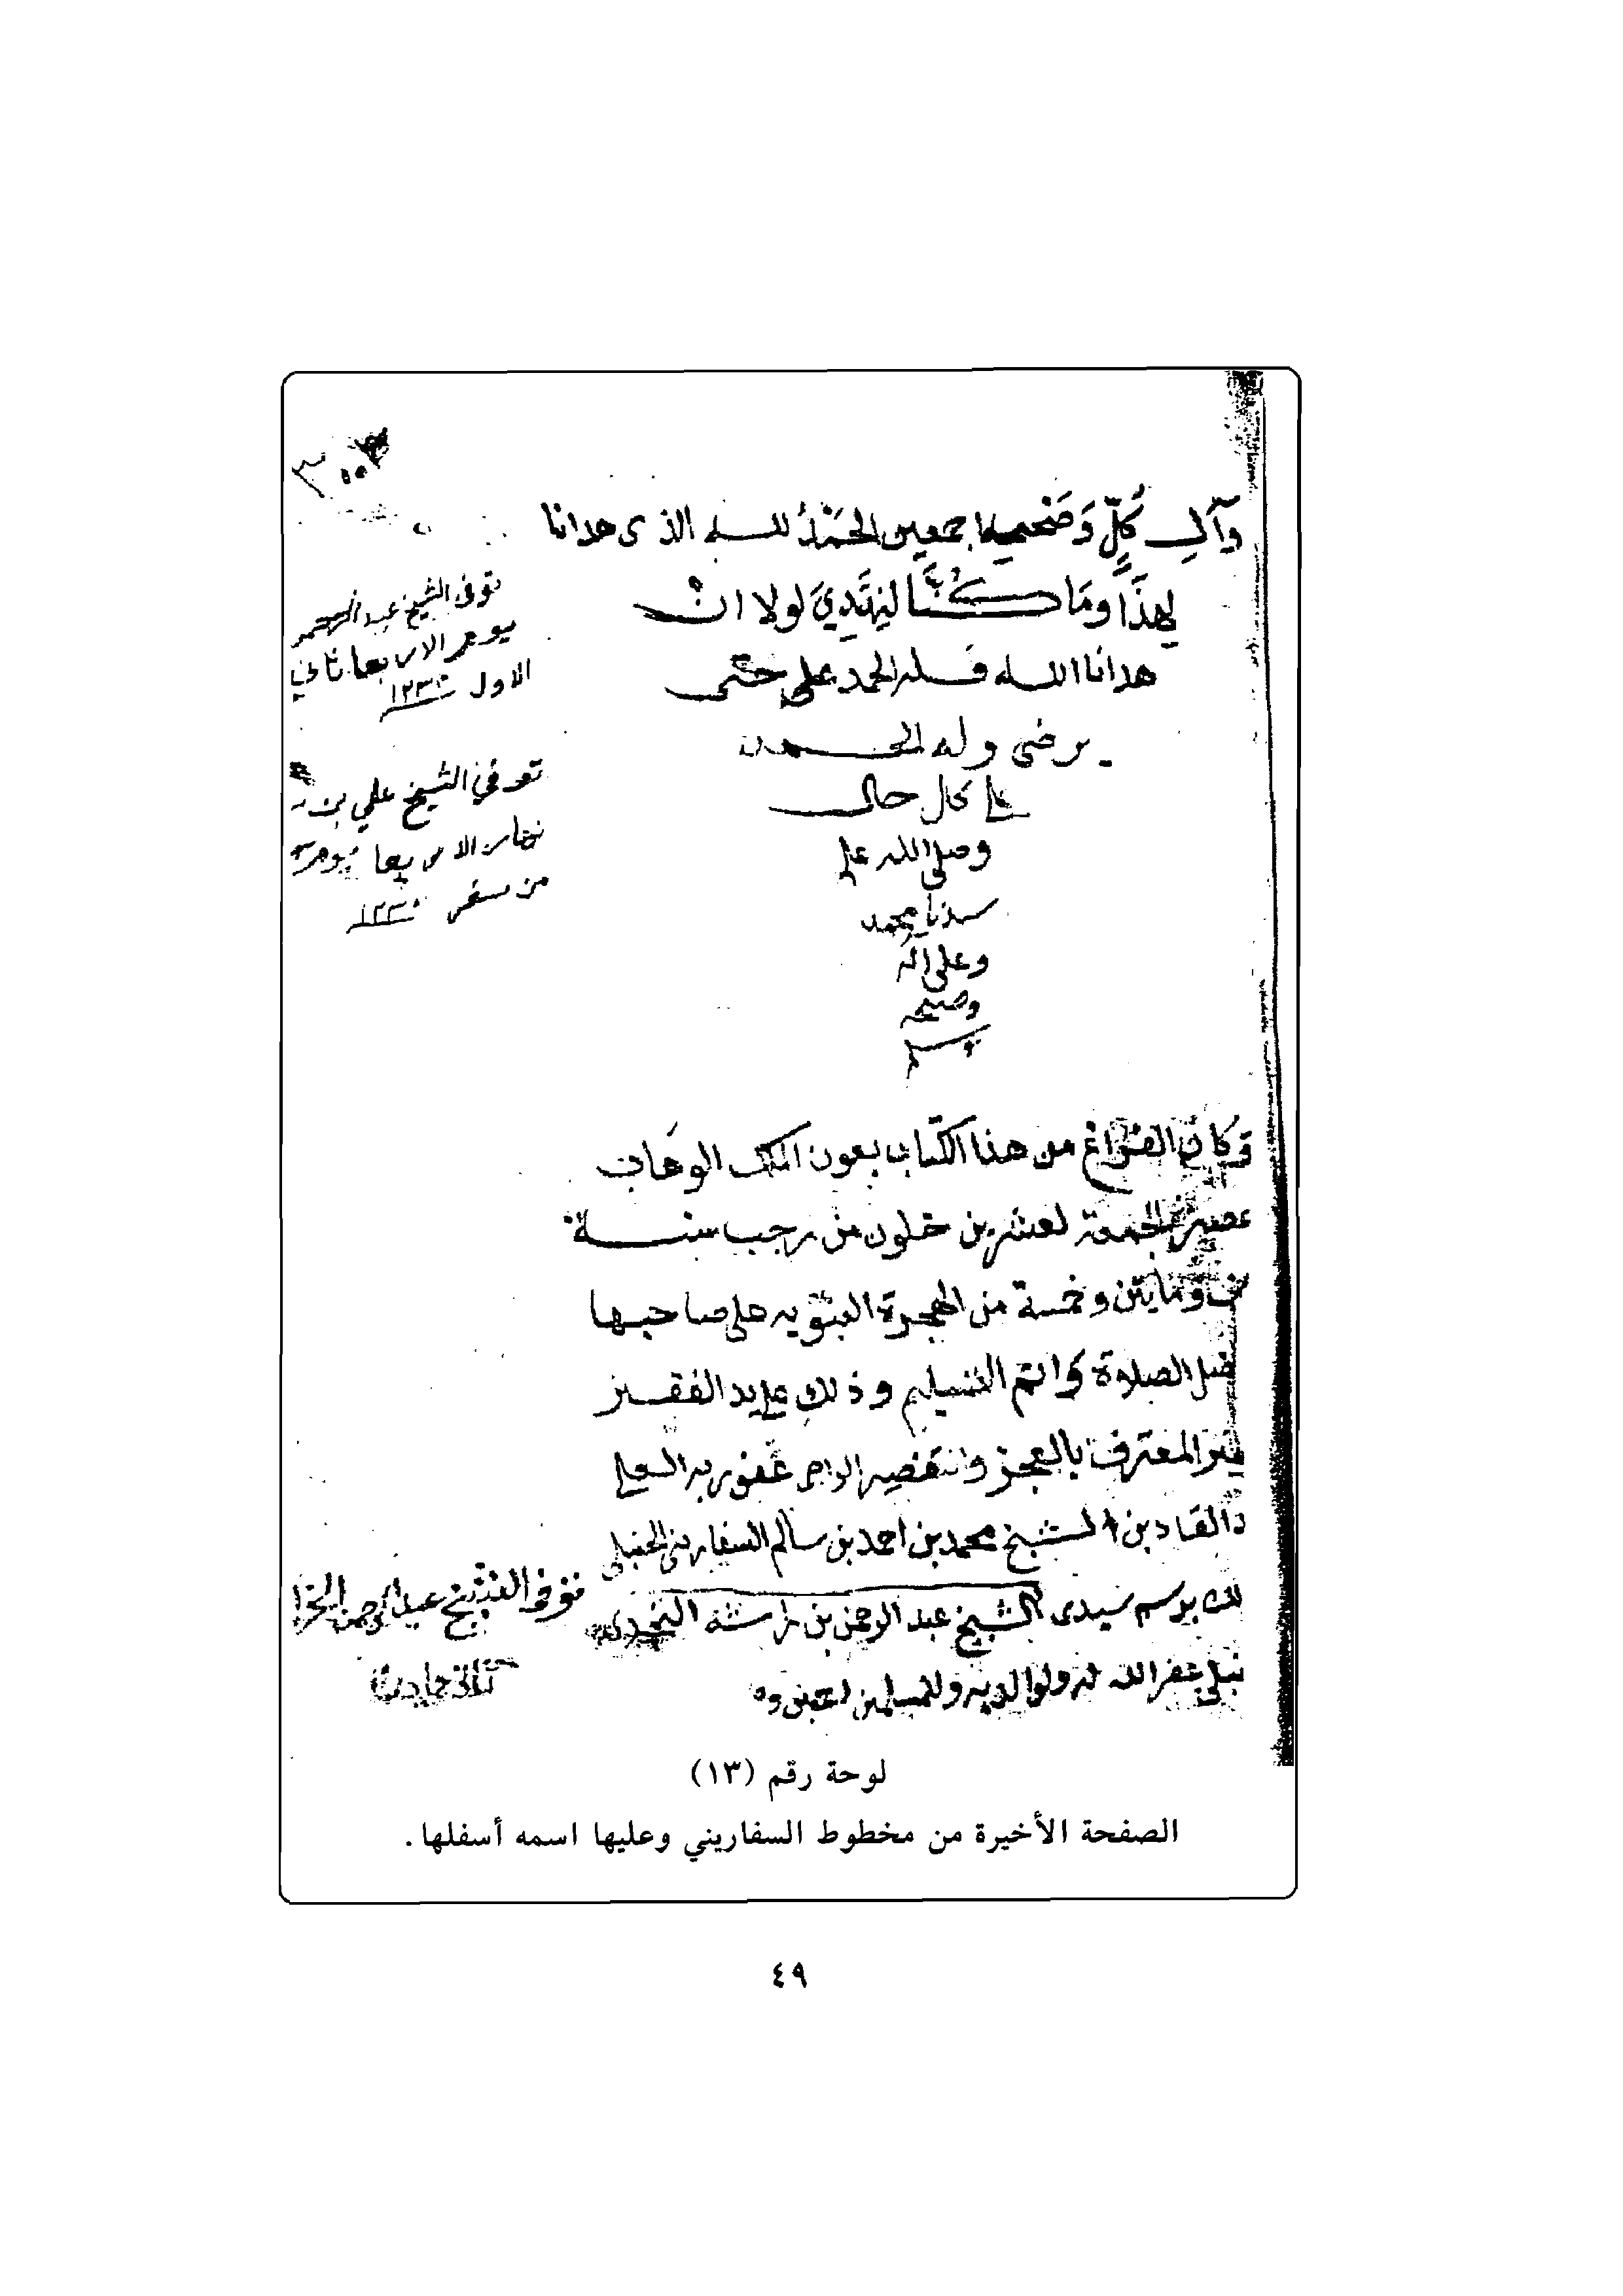 وَآلِ كُلٍّ وَصَحْبِهِ اجمعين الحَمْدُ لله الذى هدانا
لِهذَا ومَا كُنَّا لِنهتَدِيَ لولا انْ
هدانا الله فله الحمد على حتى
يرضى وله الحمد
على كل حال
وصلى الله على
سيدنا محمد
وعلى اله
وصحبه
وسلم
توفى الشيخ عبد الرحمن
يوم الاربعا ثاني
الاول ١٢٣٠
توفي الشيخ علي بن
نهار الاربعا يوم
من سفر ١٢٣٠
وَكَانَ الفراغ من هذا الكتاب بعون الملك الوَهاب
عصر الجمعة لعشرين خلون من رجب سنة
ف ومايتين وخمسة من الهجرة النبوية على صاحبها
ضل الصلاة وَاتم التسليم وذلك على يد الفقير
المعترف بالعجز والتقصير الراجى عفو ربه العلي
د القادر بن الشيخ محمد بن احمد بن سالم السفاريني الحنبلي
لك برسم سيدى الشيخ عبد الرحمن بن راشد النجدي
نبلي غفر الله له ولوالديه وللمسلمين اجمعين
توفى الشيخ عبد الرحمن
ثاني
لوحة رقم (١٣)
الصفحة الأخيرة من مخطوط السفاريني وعليها اسمه أسفلها.
٤٩